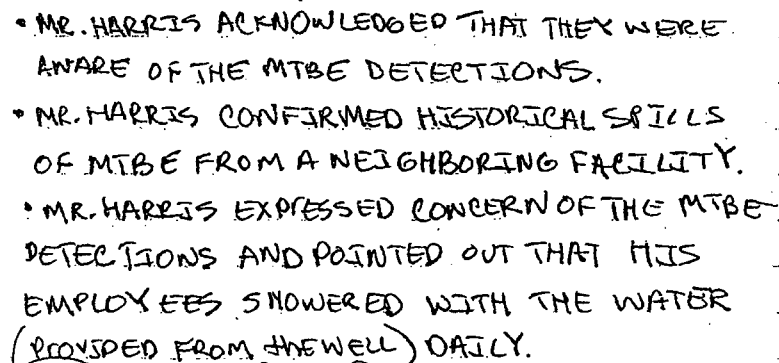 • MR. HARRIS ACKNOWLEDGED THAT THEY WERE
AWARE OF THE MTBE DETECTIONS.
• MR. HARRIS CONFIRMED HISTORICAL SPILLS
OF MTBE FROM A NEIGHBORING FACILITY.
• MR. HARRIS EXPRESSED CONCERN OF THE MTBE
DETECTIONS AND POINTED OUT THAT HIS
EMPLOYEES SHOWERED WITH THE WATER
(PROVIDED FROM THE WELL) DAILY.